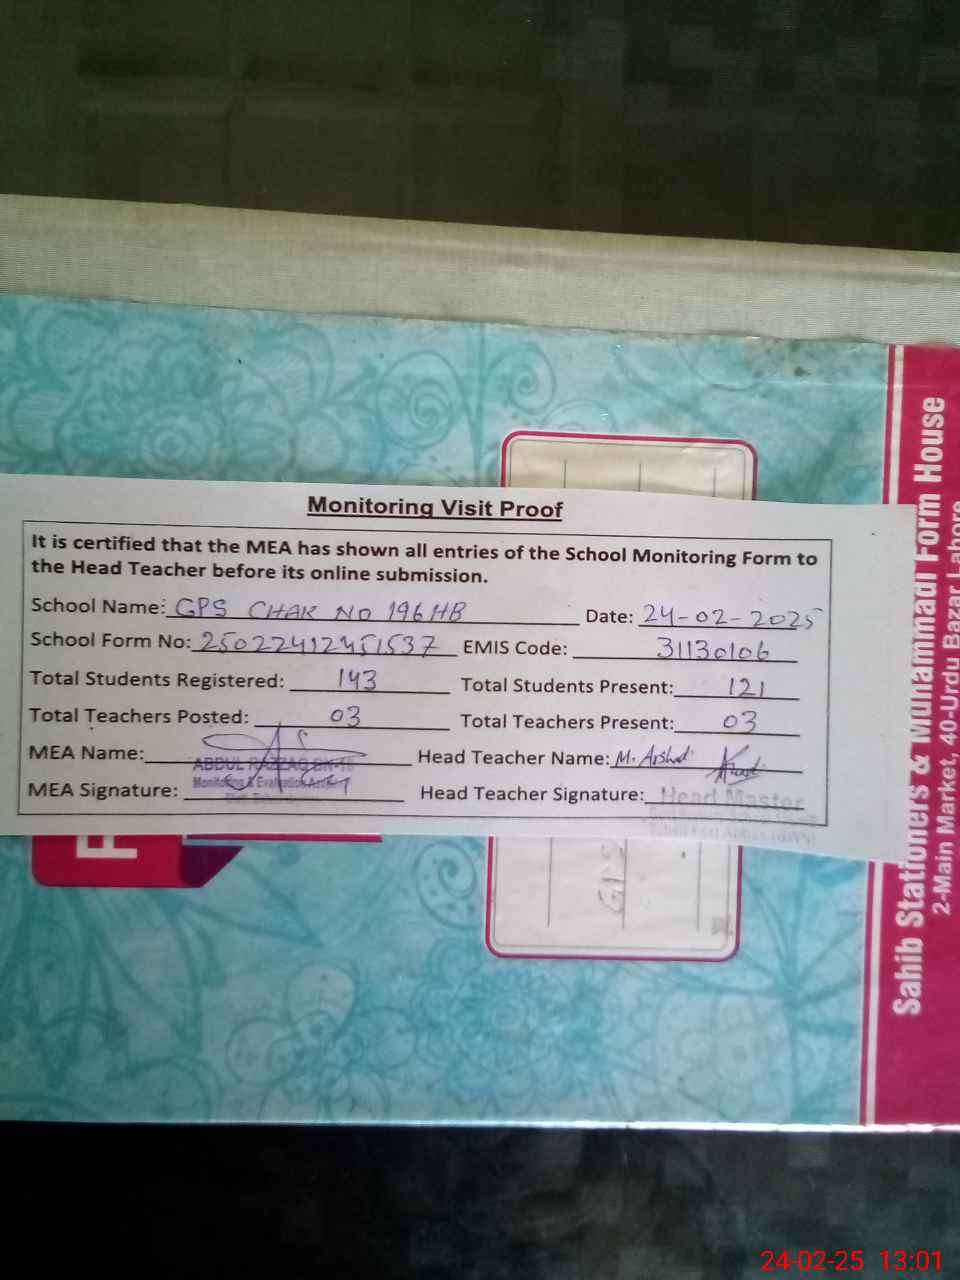 Monitoring Visit Proof
It is certified that the MEA has shown all entries of the School Monitoring Form to
the Head Teacher before its online submission.
School Name: GPS CHAK NO 196 HB Date: 24-02-2025
School Form No: 25022412451537 EMIS Code: 31130106
Total Students Registered: 143 Total Students Present: 121
Total Teachers Posted: 03 Total Teachers Present: 03
MEA Name: Head Teacher Name: M. Arshad
ABDUL RAZZAQ
Monitoring & Evaluation
MEA Signature: Head Teacher Signature: Head Master
GPS
Sahib Stationers & Muhammadi Form House
2-Main Market, 40-Urdu Bazar Lahore
24-02-25 13:01